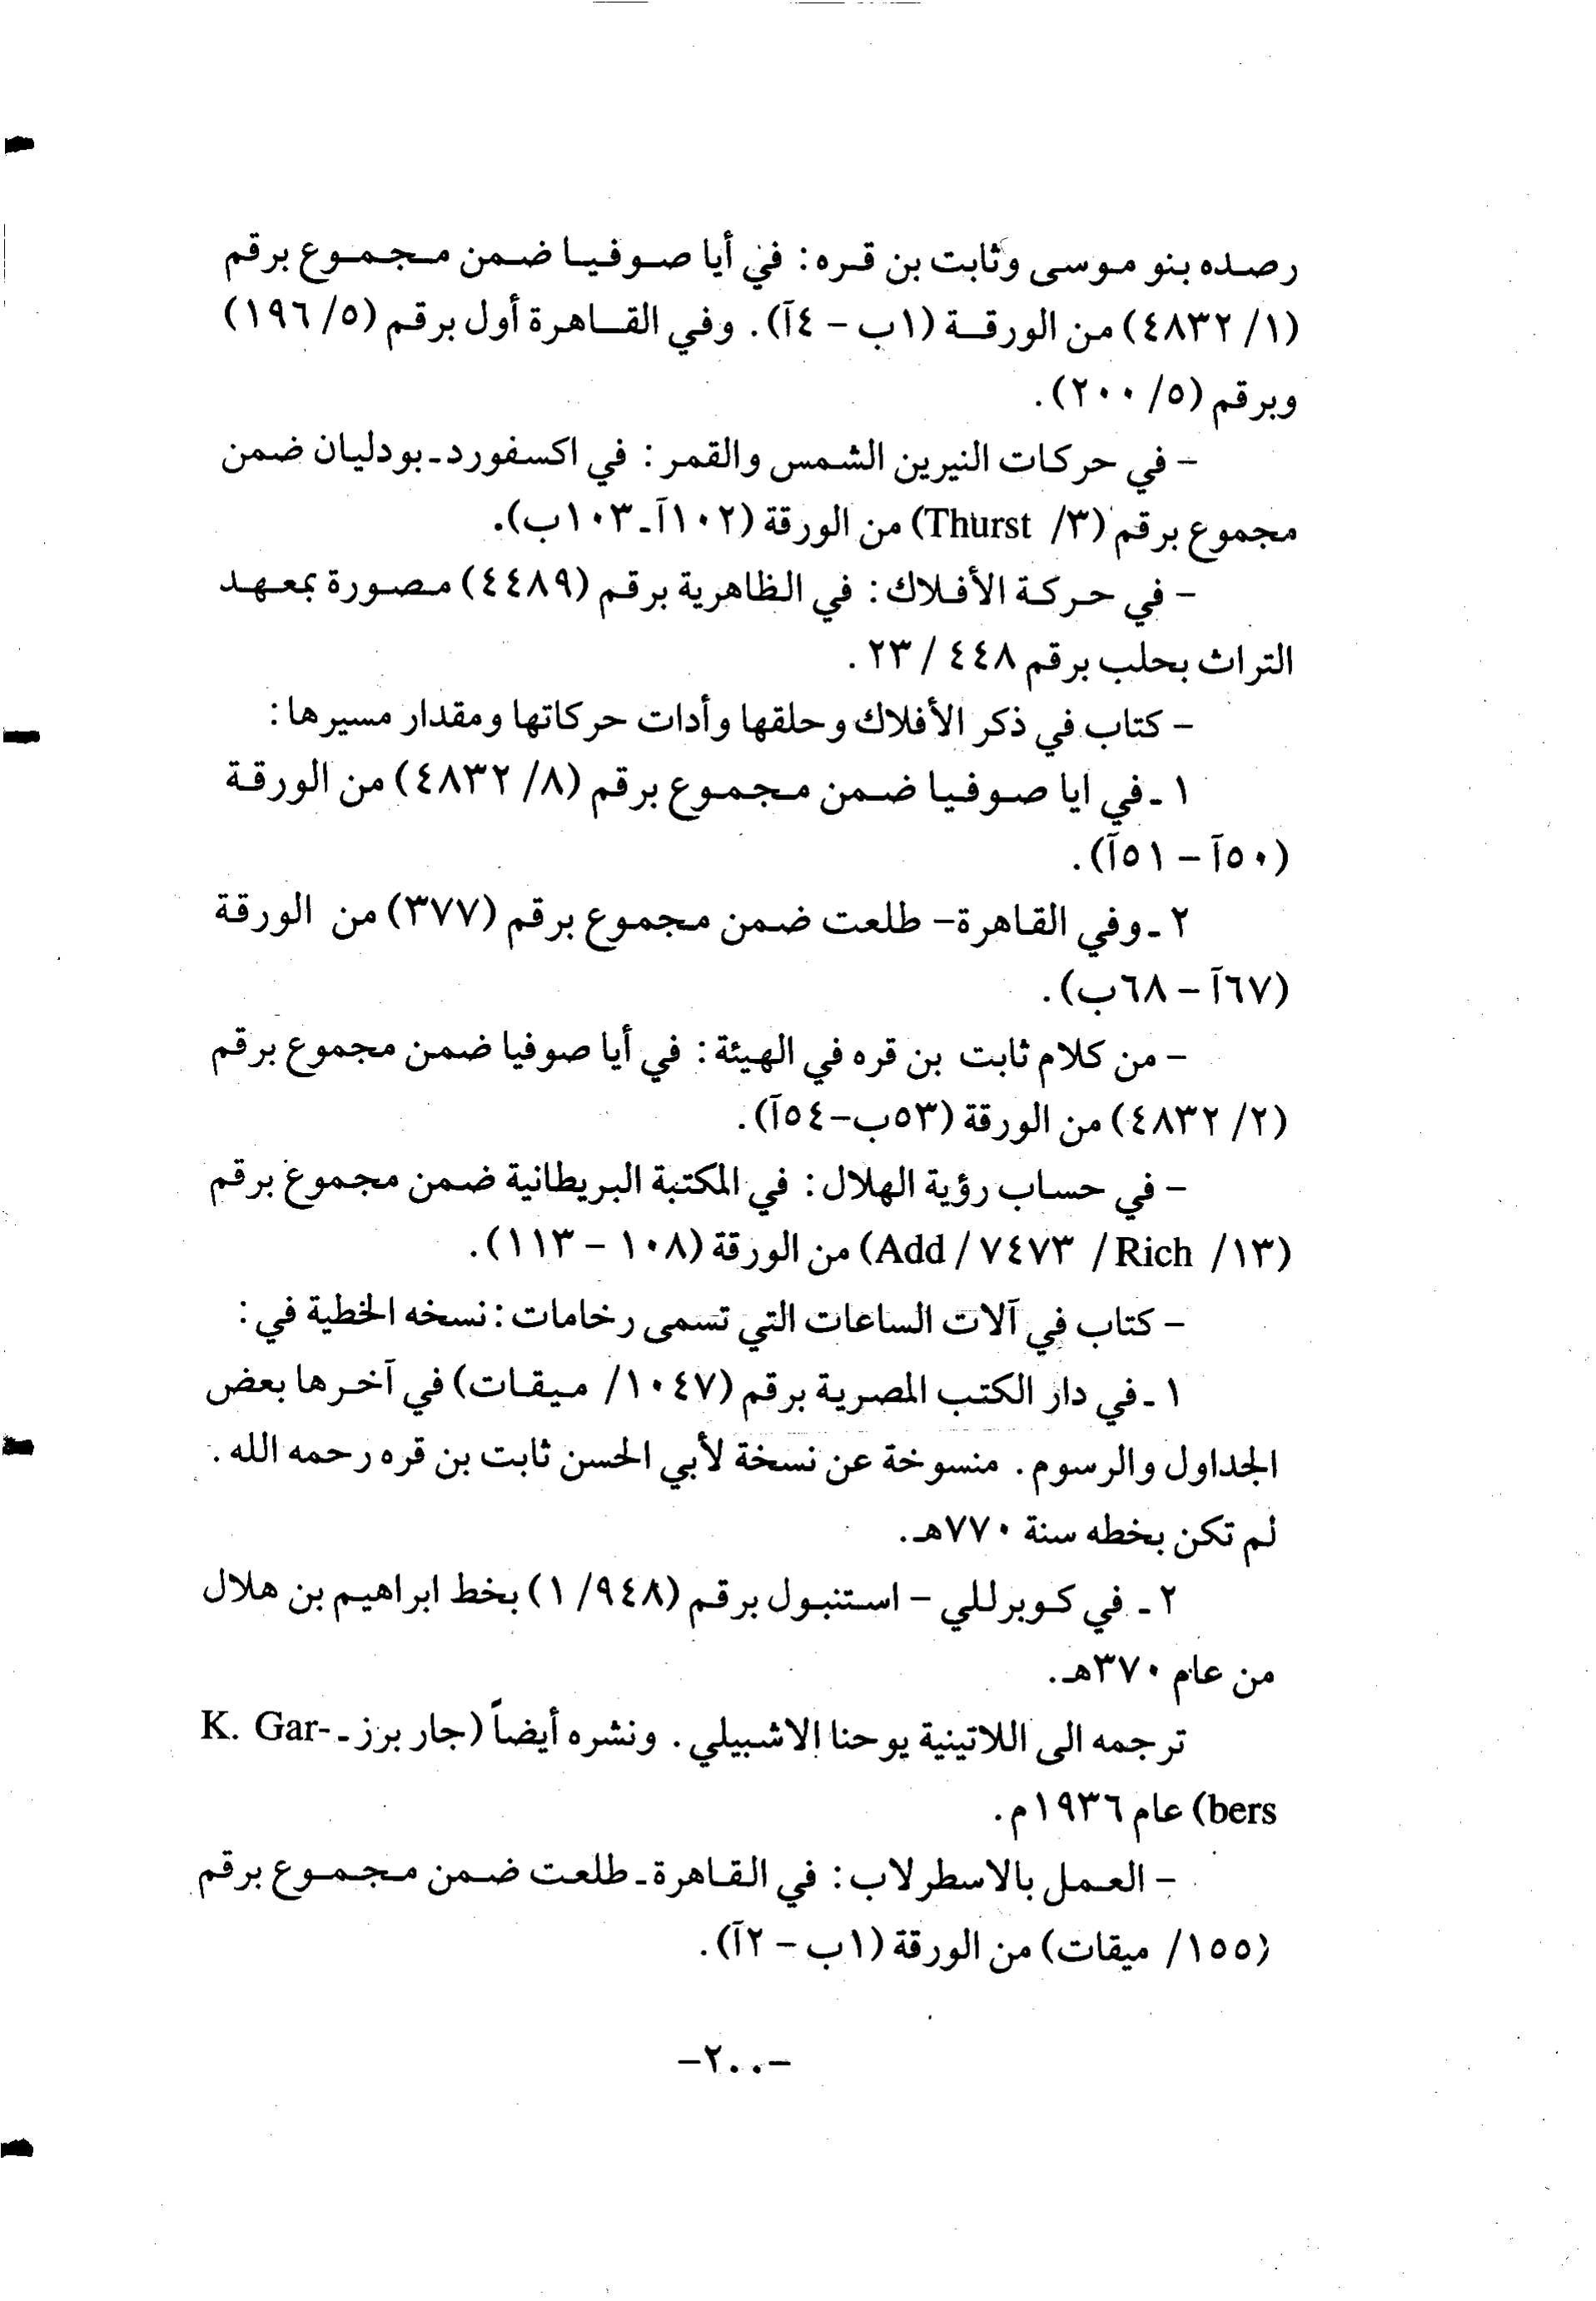 رصده بنو موسى وثابت بن قره: في أيا صوفيا ضمن مجموع برقم
(١/ ٤٨٣٢) من الورقة (١ب - ٤آ). وفي القاهرة أول برقم (٥/ ١٩٦)
وبرقم (٥/ ٢٠٠).
- في حركات النيرين الشمس والقمر: في اكسفورد ـ بودليان ضمن
مجموع برقم (٣/ Thurst) من الورقة (١٠٢آ ـ ١٠٣ب).
- في حركة الأفلاك: في الظاهرية برقم (٤٤٨٩) مصورة بمعهد
التراث بحلب برقم ٤٤٨ / ٢٣.
- كتاب في ذكر الأفلاك وحلقها وأدات حركاتها ومقدار مسيرها:
١ ـ في ايا صوفيا ضمن مجموع برقم (٨/ ٤٨٣٢) من الورقة
(٥٠آ - ٥١آ).
٢ ـ وفي القاهرة - طلعت ضمن مجموع برقم (٣٧٧) من الورقة
(٦٧آ - ٦٨ب).
- من كلام ثابت بن قره في الهيئة: في أيا صوفيا ضمن مجموع برقم
(٢/ ٤٨٣٢) من الورقة (٥٣ب-٥٤آ).
- في حساب رؤية الهلال: في المكتبة البريطانية ضمن مجموع برقم
(١٣/ Rich / ٧٤٧٣ / Add) من الورقة (١٠٨ - ١١٣).
- كتاب في آلات الساعات التي تسمى رخامات: نسخه الخطية في:
١ ـ في دار الكتب المصرية برقم (١٠٤٧/ ميقات) في آخرها بعض
الجداول والرسوم. منسوخة عن نسخة لأبي الحسن ثابت بن قره رحمه الله.
لم تكن بخطه سنة ٧٧٠هـ.
٢ ـ في كوبرللي - استنبول برقم (٩٤٨/ ١) بخط ابراهيم بن هلال
من عام ٣٧٠هـ.
ترجمه الى اللاتينية يوحنا الاشبيلي. ونشره أيضاً (جار برز ـ K. Gar-
bers) عام ١٩٣٦م.
- العمل بالاسطرلاب: في القاهرة ـ طلعت ضمن مجموع برقم
(١٥٥/ ميقات) من الورقة (١ب - ٢آ).
-٢٠٠-